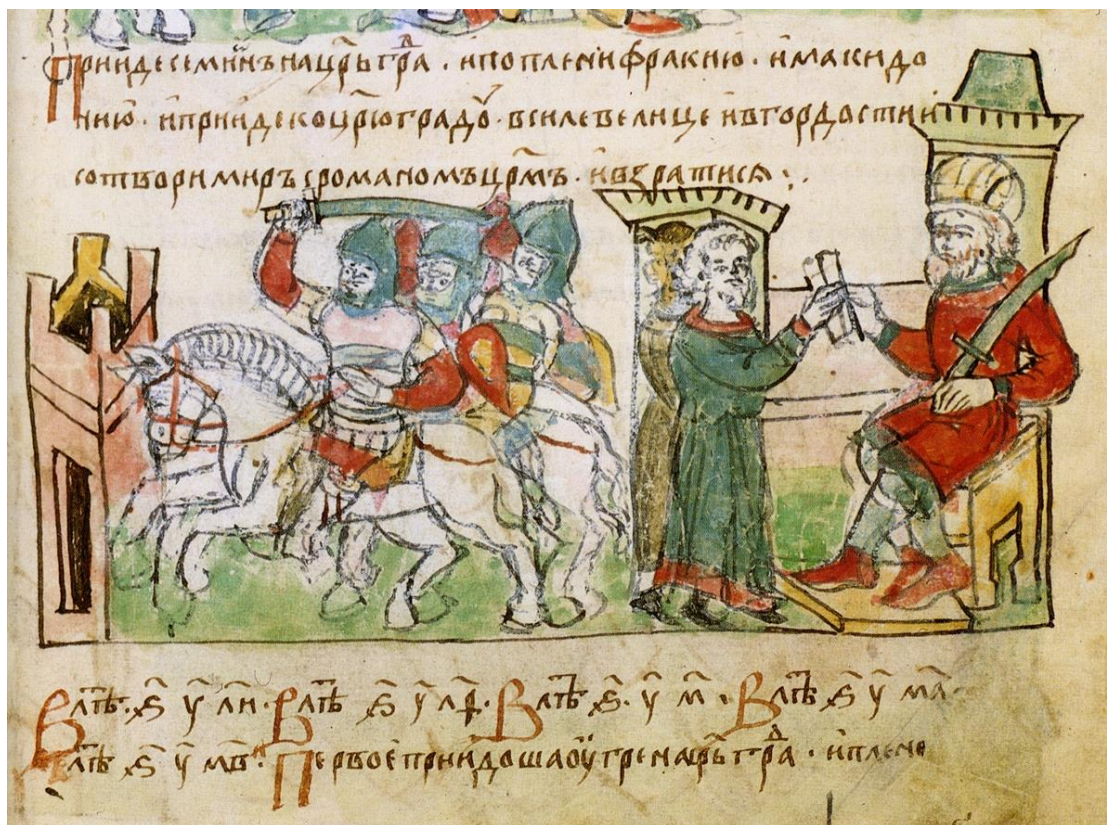 Прииде семинъ на цр҃ьграⷣ . и поплени фракию . и макидо
нию . и прииде ко цр҃юградꙋ . в силе велице и в гордости и
сотвори миръ с романомъ цр҃мъ . и взратися :.
В лѣт҃ . ҂ѕ҃ у҃ л҃и . В лѣт҃ ҂ѕ҃ у҃ л҃ѳ . В лѣт҃ ҂ѕ҃ . у҃ м҃ . В лѣт҃ ҂ѕ҃ у҃ м҃а .
В лѣт҃ ҂ѕ҃ у҃ м҃в . Первое приидоша оугре на цр҃ьграⷣ . и плене